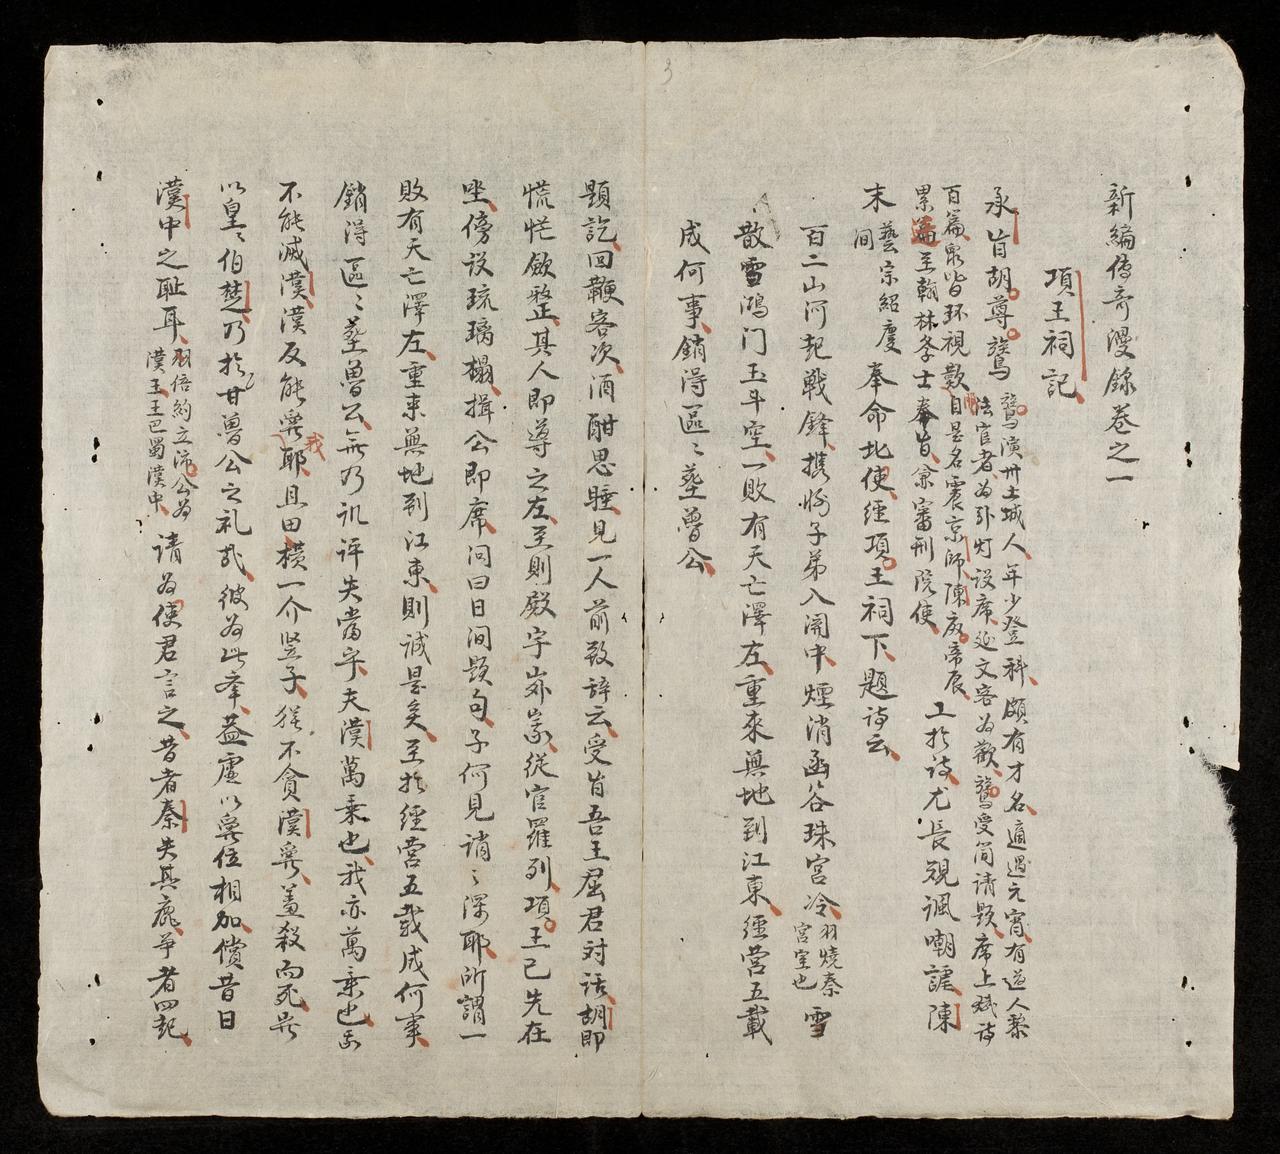 新編傳奇漫錄卷之一
項王祠記
承旨胡尊鶩
鶩演州土城人年少登科頗有才名適遇元宵有道人黎
法官者為引灯設席延文客為歡鶩受簡請題席上賦詩
百篇衆皆环視歎服自是名震京師陳廢帝辰
累至翰林学士奉旨宗審刑院使
工於詩尤長覘諷嘲謔陳
末
藝宗紹慶
間
奉命北使經項王祠下題诗云
百二山河起戰鋒携將子弟入関中煙消函谷珠宮冷
羽燒秦
宮室也
雪
散雪鴻门玉斗空一敗有天亡澤左重來無地到江東經营五載
成何事銷得區〻葬魯公
題訖回鞭客次酒酣思睡見一人前致辞云受旨吾王屈君対话胡即
慌忙歛整其人即導之左至則殿宇岧嶤從官羅列項王已先在
坐傍设琉璃榻揖公即席问曰日间题句子何見誚〻深耶所謂一
敗有天亡澤左重來無地到江東則诚是矣至於經营五載成何事
銷得區〻葬魯公無乃讥评失當乎夫漢萬乘也我亦萬乘也我
不能滅漢漢反能爵我耶且田横一介竖子猶不貪漢爵羞殺而死豈
以皇〻伯楚乃於甘魯公之礼哉彼為此举盖虚以爵位相加償昔日
漢中之耻耳
羽倍約立沛公為
漢王王巴蜀漢中
请為使君言之昔者秦失其鹿争者四起